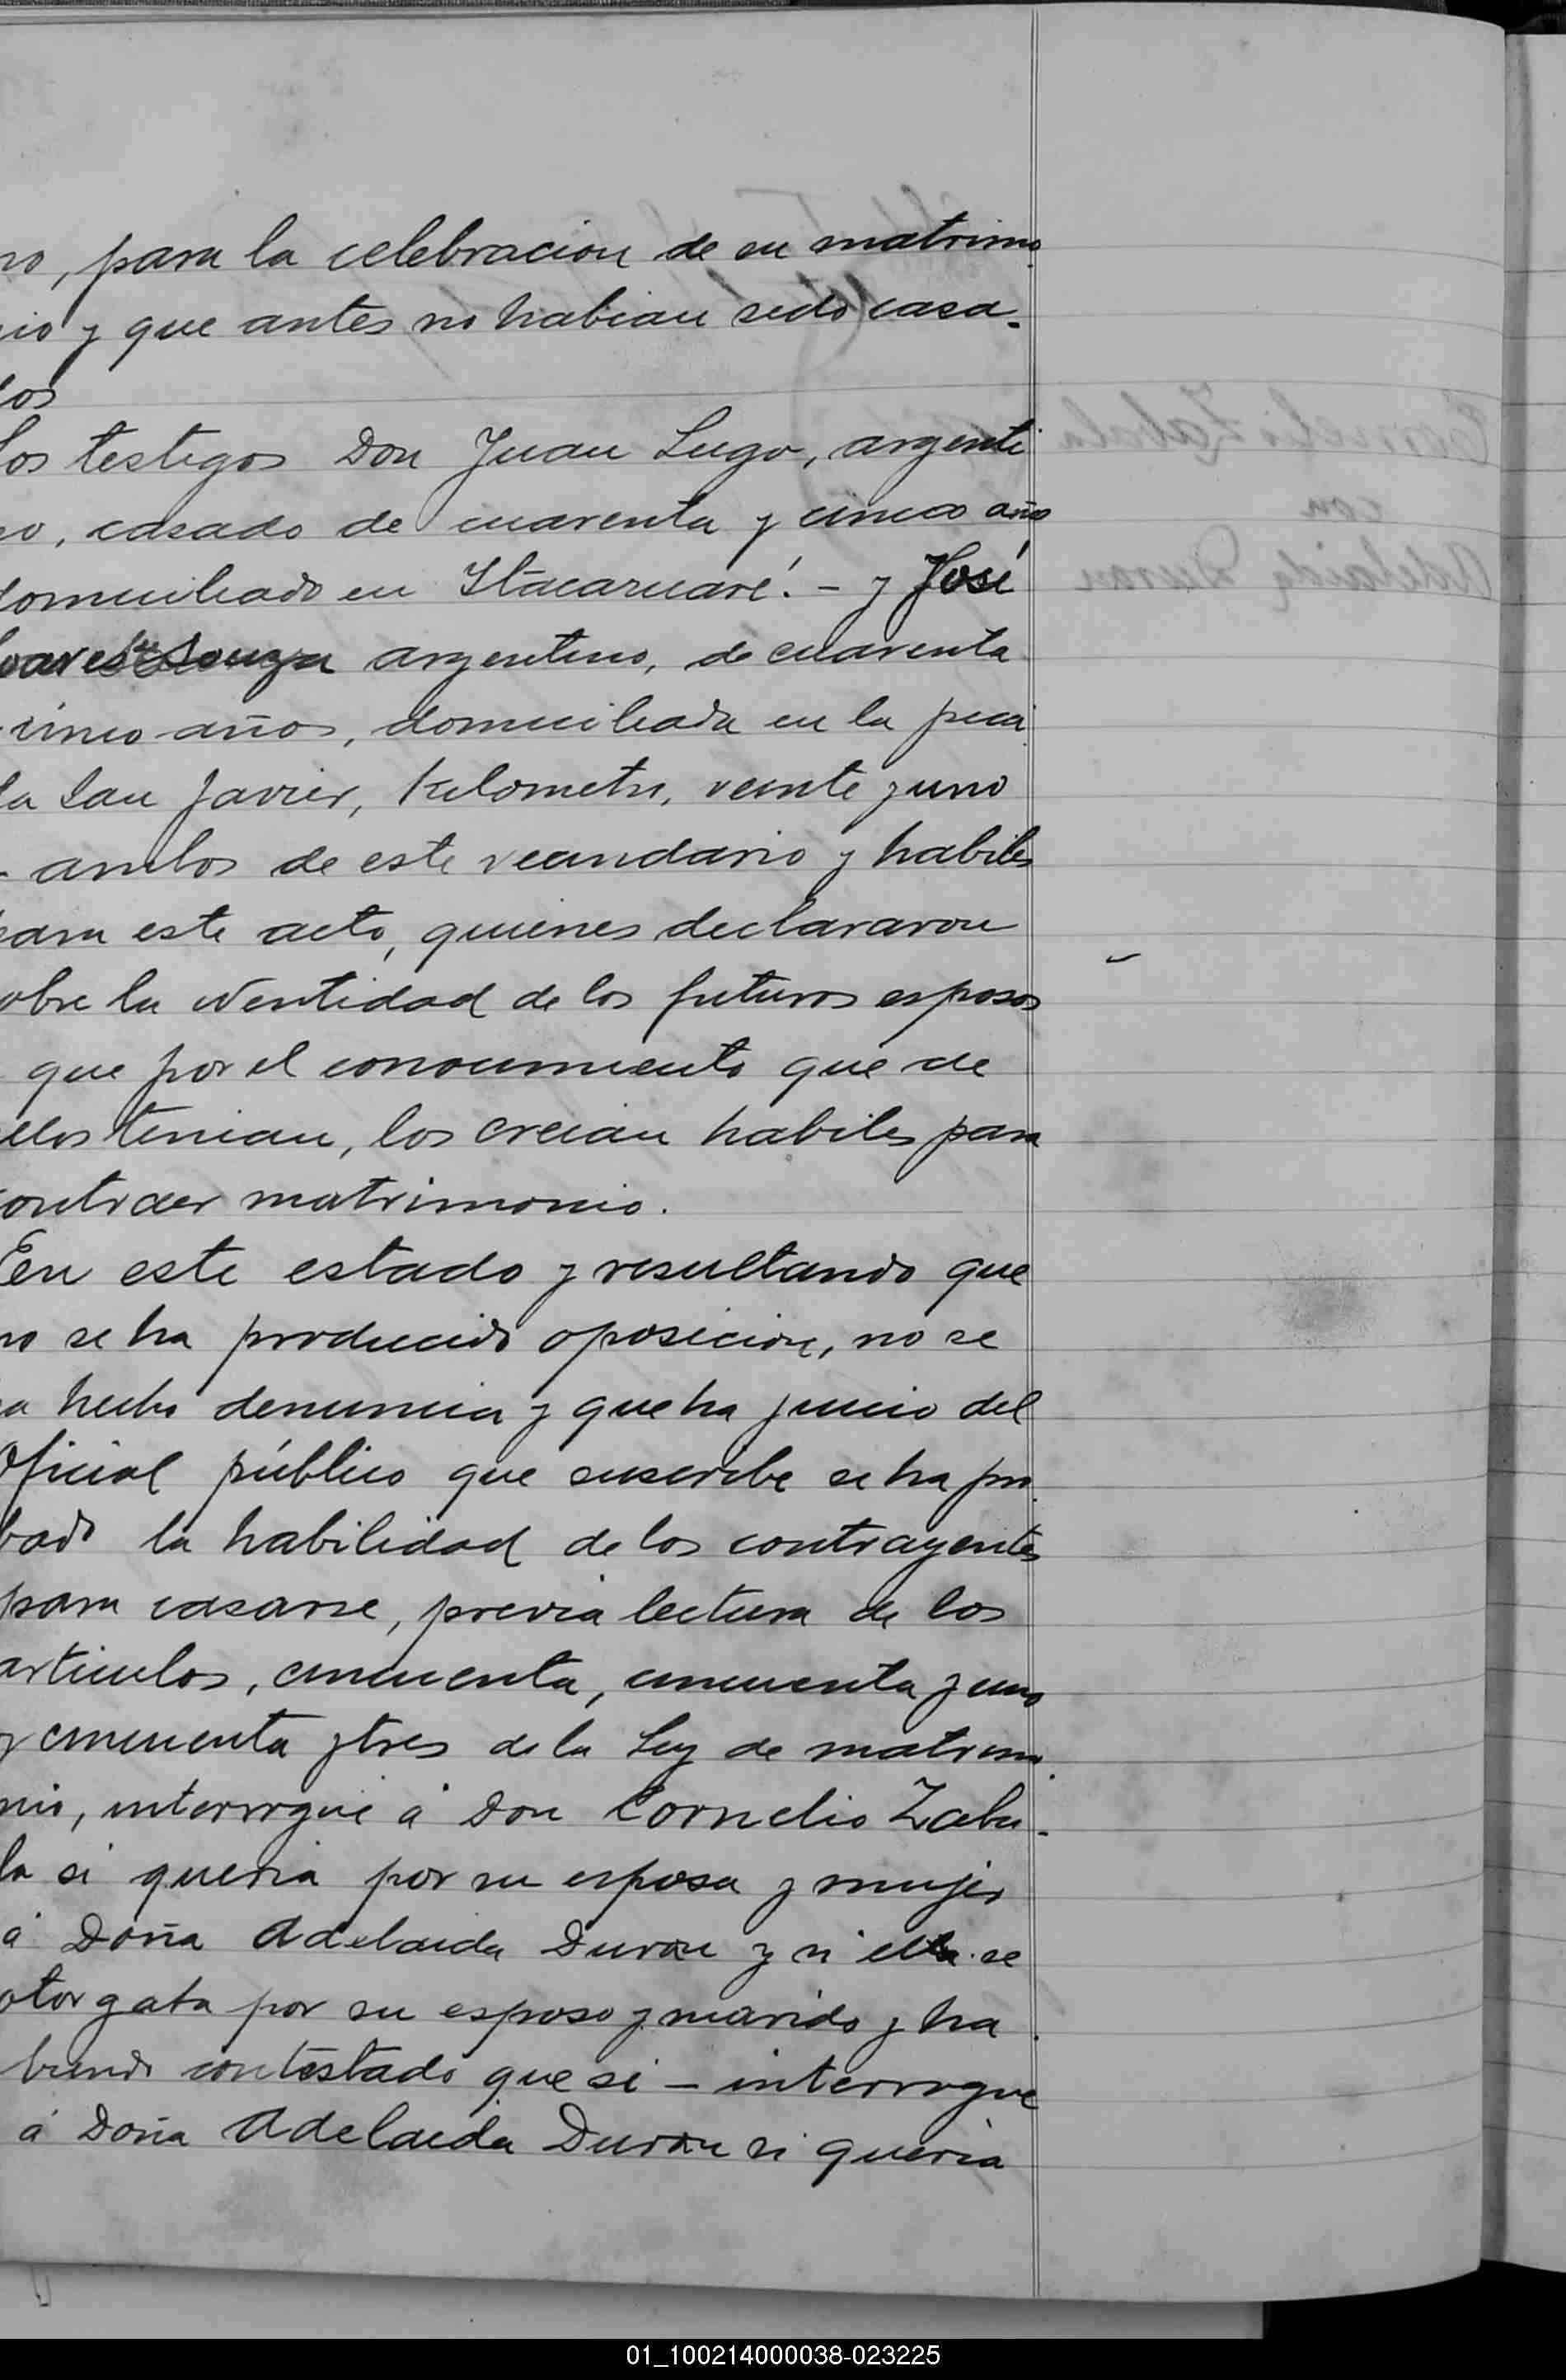 no, para la celebracion de su matrimo
nio y que antes no habian sido casa-
dos
Los testigos Don Juan Lugo, argenti
no, casado de cuarenta y cinco años
domiciliado en Itacaruaré. - y José
Soares de Souza argentino, de cuarenta
cinco años, domiciliado en la pica
da San Javier, Kilometro, veinte y uno
- ambos de este vecindario y habiles
para este acto, quienes declararon
sobre la identidad de los futuros esposos
que por el conocimiento que de
ellos tenian, los creian habiles para
contraer matrimonio.
En este estado y resultando que
no se ha producido oposicion, no se
ha hecho denuncia y que ha juicio del
Oficial público que suscribe se ha pro
bado la habilidad de los contrayentes
para casarse, previa lectura de los
articulos, cincuenta, cincuenta y uno
y cincuenta y tres de la Ley de matrimo
nio, interrogué á Don Cornelio Zaba-
la si queria por su esposa y mujer
á Doña Adelaida Duran y si ella se
otorgaba por su esposo y marido y ha
biendo contestado que si - interrogue
á Doña Adelaida Duran si queria
01_100214000038-023225